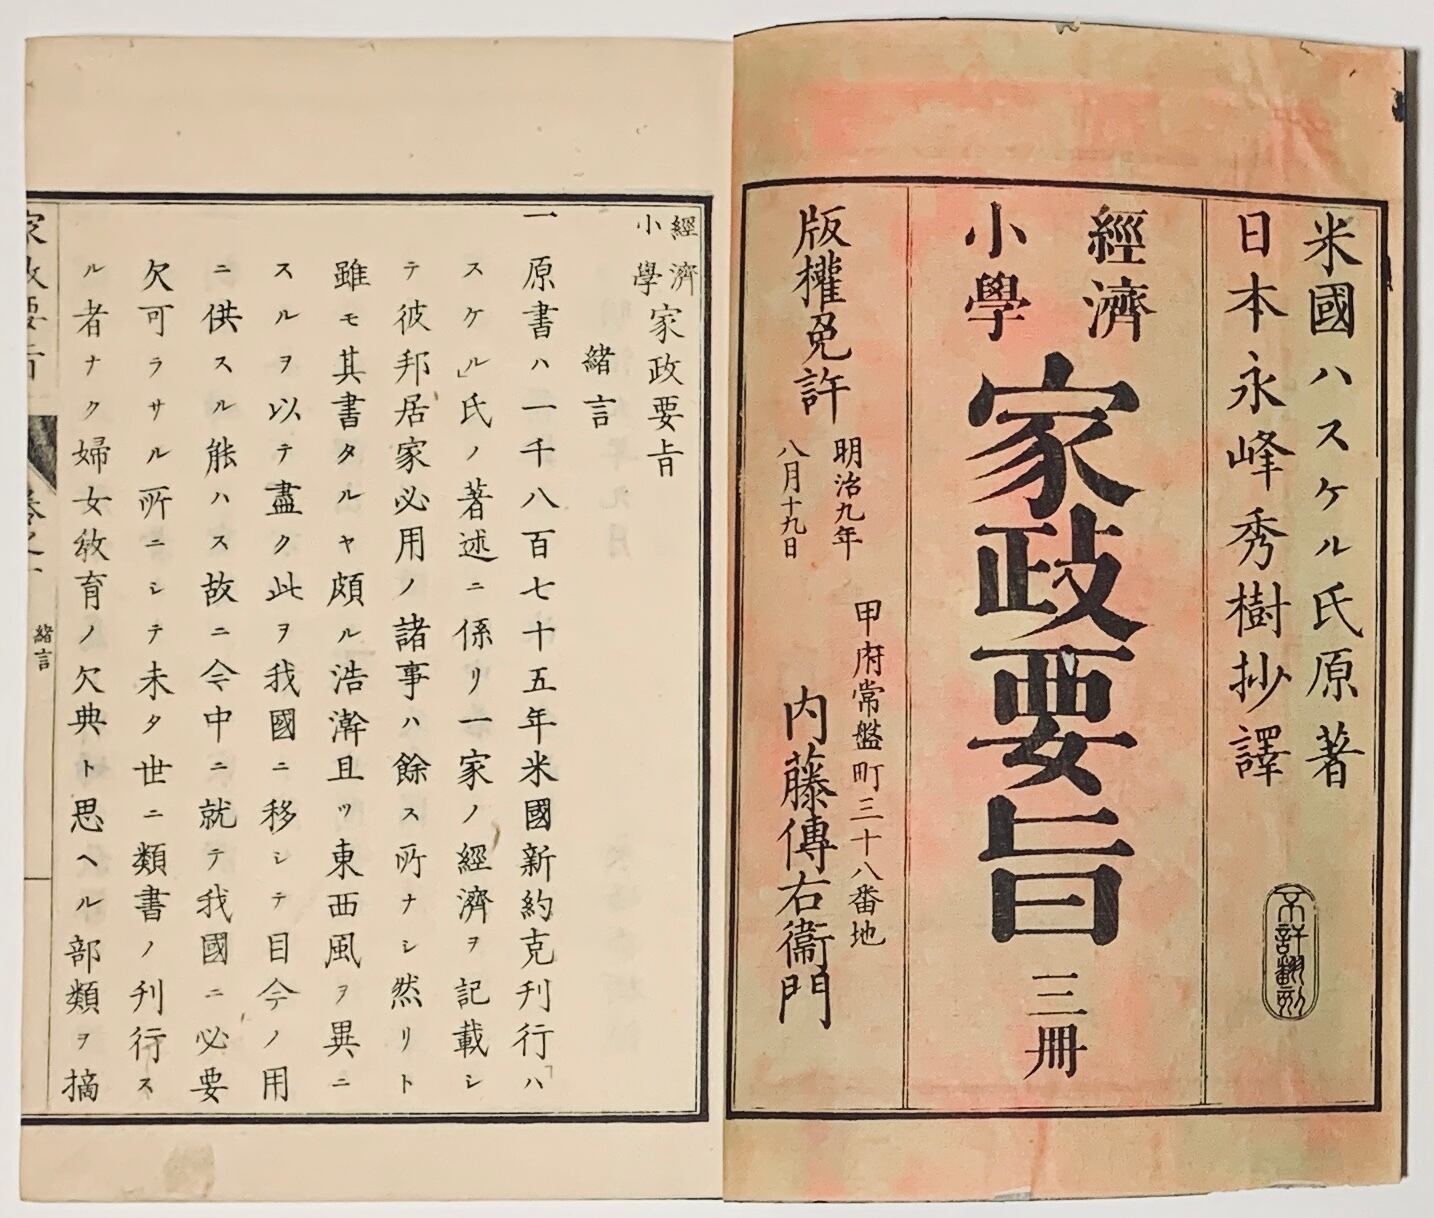 米國ハスケル氏原著
日本永峰秀樹抄譯
不許翻刻
經濟
小學
家政要旨
三冊
版權免許
明治九年
八月十九日
甲府常盤町三十八番地
内藤傳右衞門
經濟
小學
家政要旨
緒言
一原書ハ一千八百七十五年米國新約克刊行「ハ
スケル」氏ノ著述ニ係リ一家ノ經濟ヲ記載シ
テ彼邦居家必用ノ諸事ハ餘ス所ナシ然リト
雖モ其書タルヤ頗ル浩澣且ツ東西風ヲ異ニ
スルヲ以テ盡ク此ヲ我國ニ移シテ目今ノ用
ニ供スル能ハス故ニ今中ニ就テ我國ニ必要
欠可ラサル所ニシテ未タ世ニ類書ノ刊行ス
ル者ナク婦女敎育ノ欠典ト思ヘル部類ヲ摘
家政要旨
卷之一
緒言